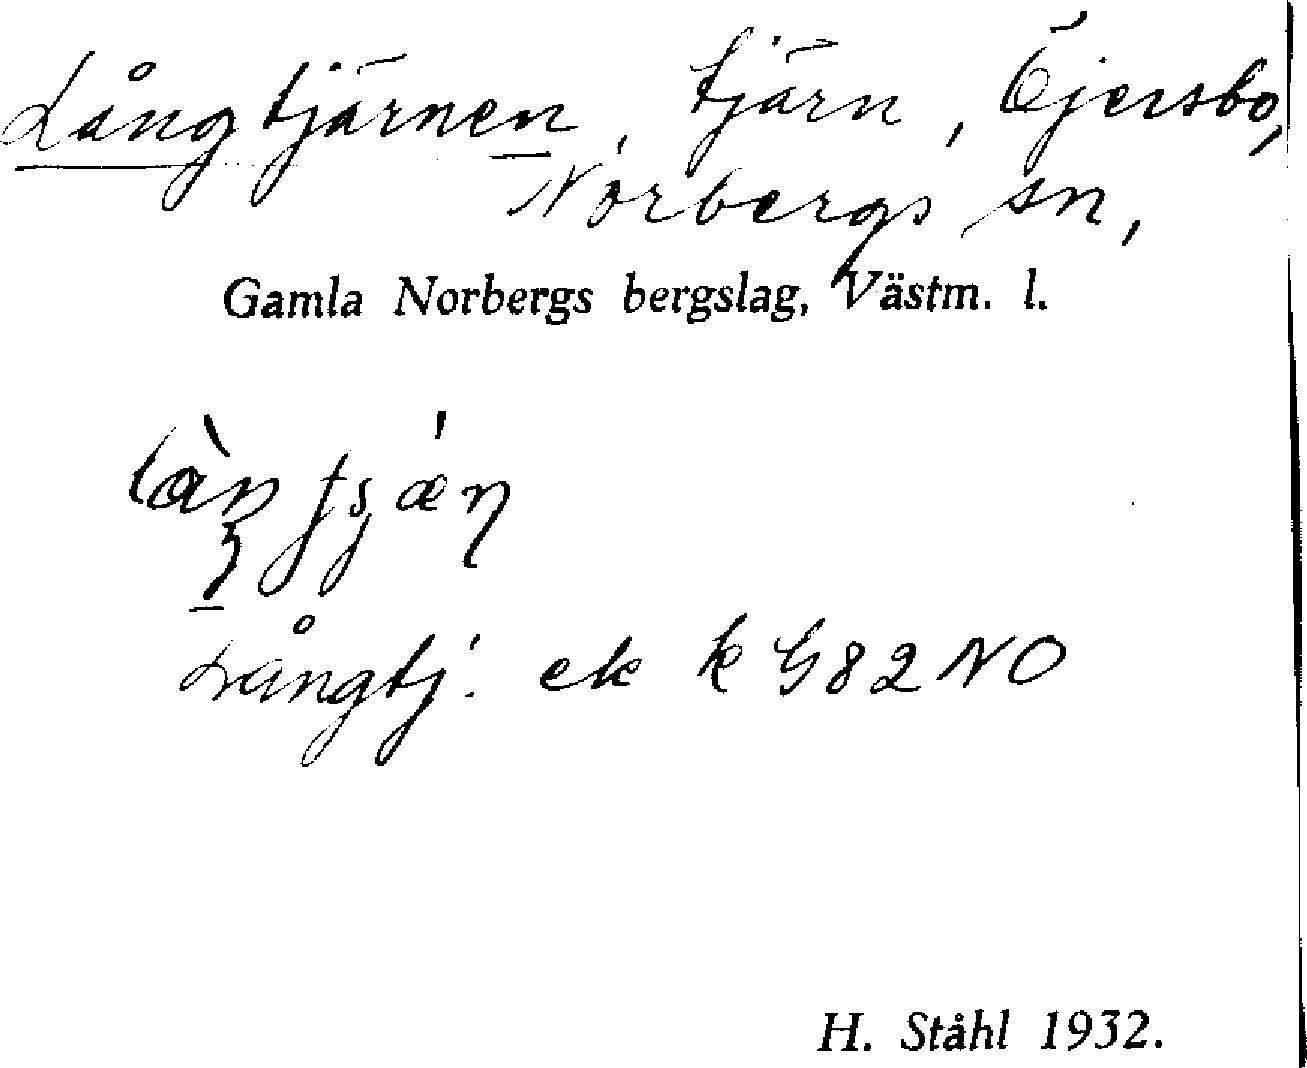 Långtjärnen, tjärn, Öjersbo,
Norbergs sn,
Gamla Norbergs bergslag, Västm. l.
Långtj: ek k G82 NO
H. Ståhl 1932.